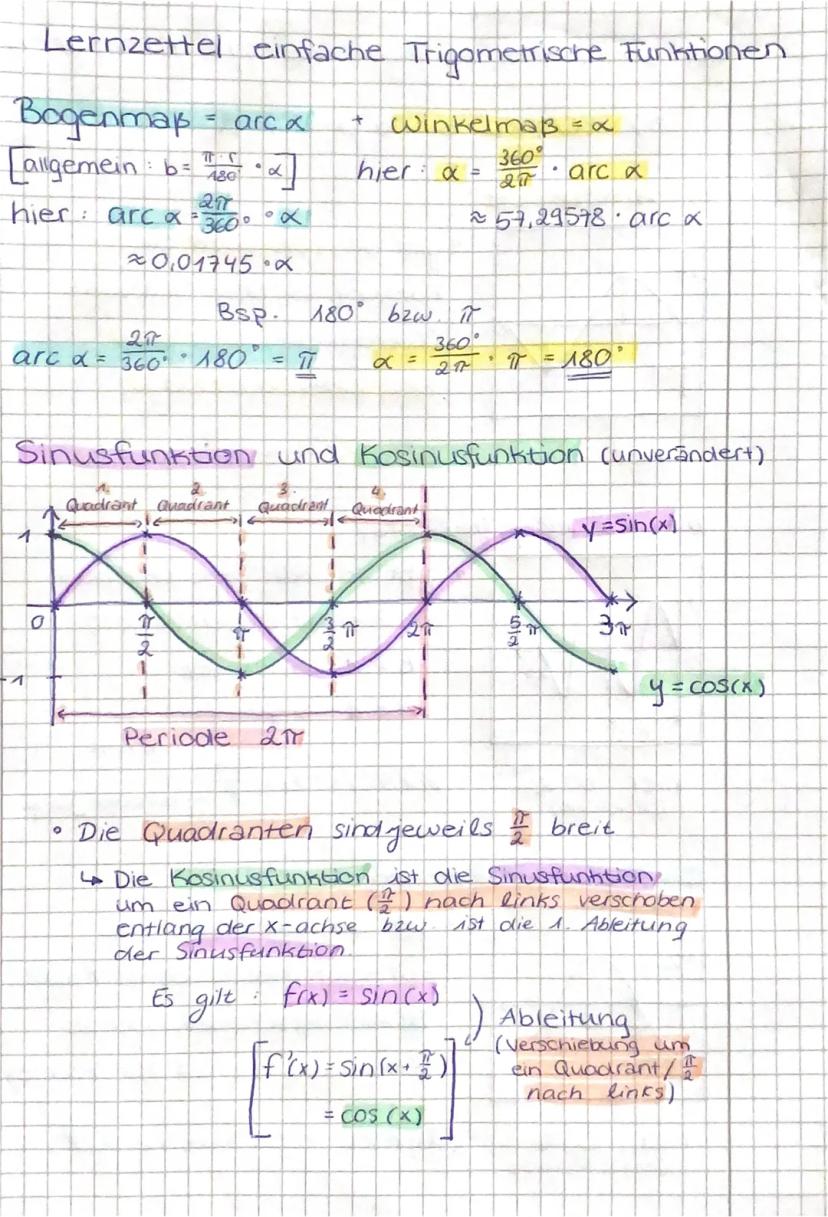 Lernzettel einfache Trigometrische Funktionen
Bogenmaß = arc α + Winkelmaß = α
[allgemein: b = π·r/180° · α] hier: α = 360°/2π · arc α
hier: arc α = 2π/360° · α ≈ 57,29578 · arc α
≈ 0,01745 · α
Bsp. 180° bzw. π
arc α = 2π/360° · 180° = π α = 360°/2π · π = 180°
Sinusfunktion und Kosinusfunktion (unverändert)
1. Quadrant 2. Quadrant 3. Quadrant 4. Quadrant
1 y = sin(x)
0 π/2 π 3/2 π 2π 5/2 π 3π
-1 y = cos(x)
Periode 2π
• Die Quadranten sind jeweils π/2 breit
↳ Die Kosinusfunktion ist die Sinusfunktion
um ein Quadrant (π/2) nach links verschoben
entlang der x-achse bzw. ist die 1. Ableitung
der Sinusfunktion.
Es gilt: f(x) = sin(x)
Ableitung
(Verschiebung um
[f'(x) = sin(x + π/2) ein Quadrant / π/2
nach links)
= cos(x)]